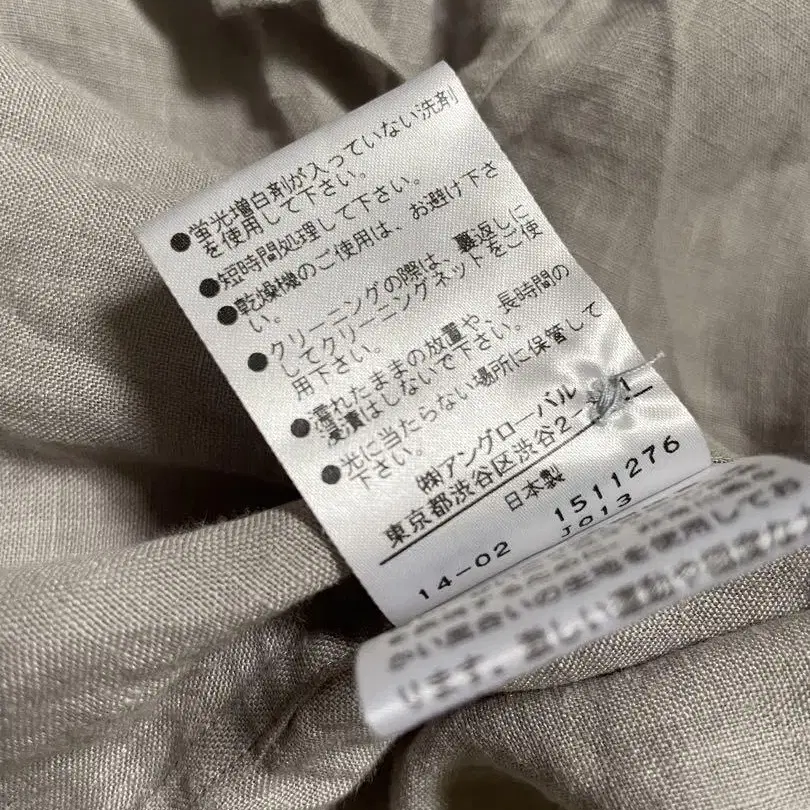 ●蛍光増白剤が入っていない洗剤
を使用して下さい。
●短時間処理して下さい。
●乾燥機のご使用は、お避け下さ
い。
●クリーニングの際は、裏返しに
してクリーニングネットをご使
用下さい。
●濡れたままの放置や、長時間の
浸漬はしないで下さい。
●光に当たらない場所に保管して
下さい。
㈱アングローバル
東京都渋谷区渋谷2-
日本製
1511276
14-02 J013